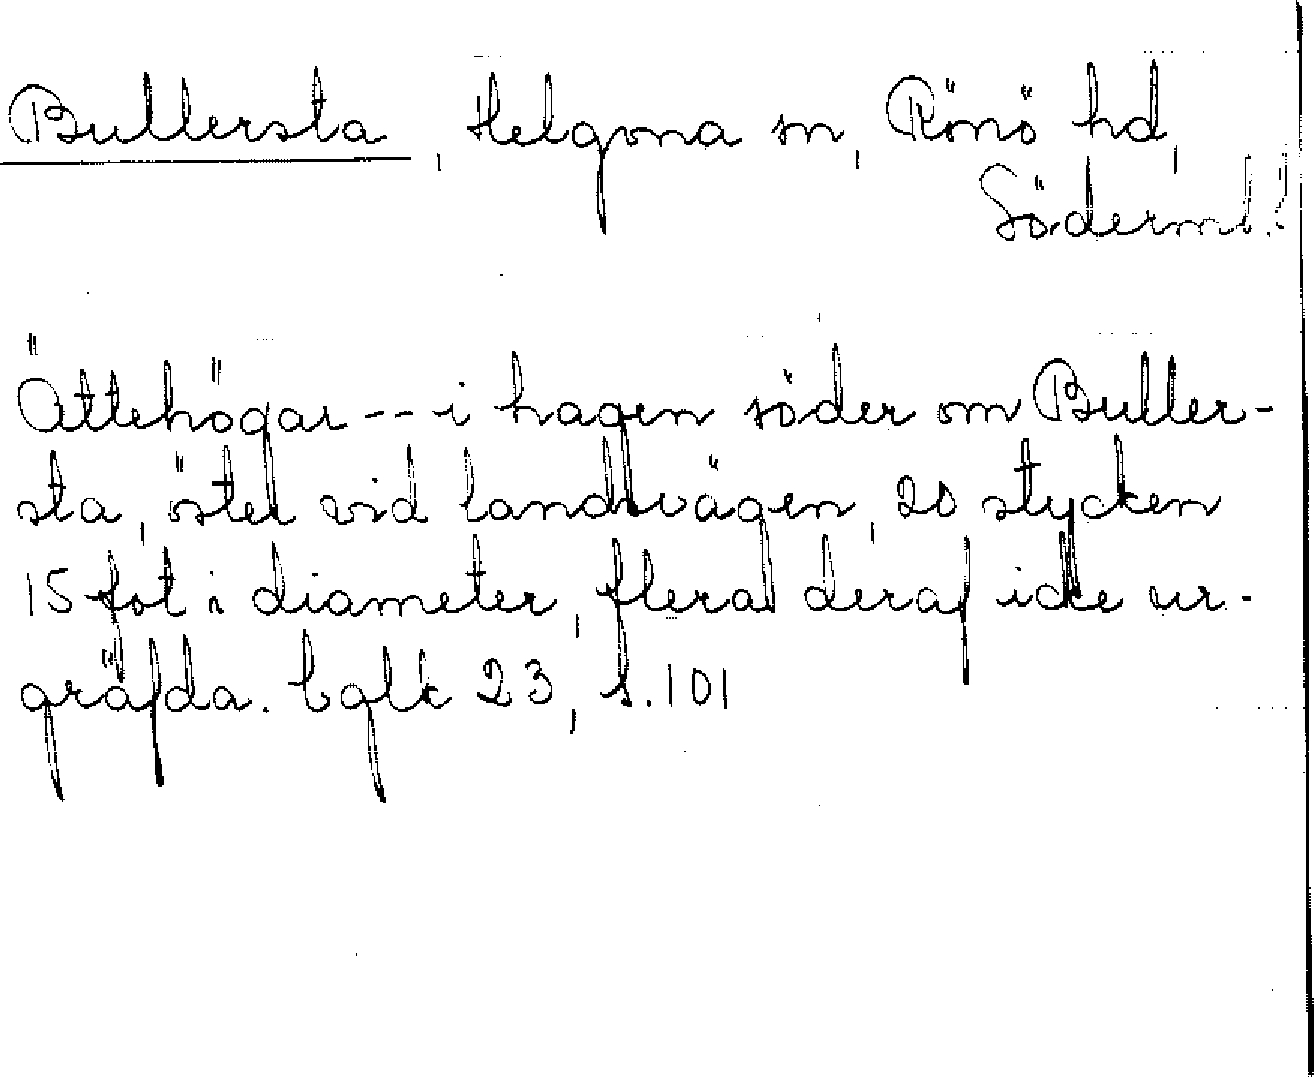 Bullersta, Helgona sn, Rönö hd,
Söderml.
Ättehögar -- i hagen söder om Buller-
sta, öster vid landsvägen, 20 stycken
15 fot i diameter, flera deraf icke ur-
gräfda. 23, s. 101